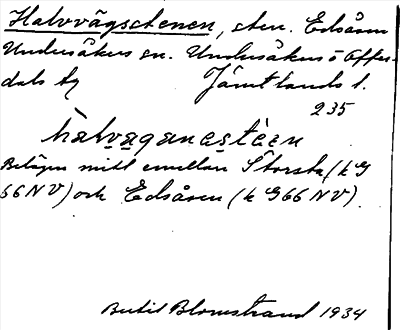 Halvvägsstenen, sten. Edsåsen
Undersåkers sn. Undersåkers o Offer-
dals tg Jämtlands l.
235
hàlvaganestèen
Belägen mitt emellan Storsta (k G
66 NV) och Edsåsen (k G 66 NV).
Bertil Blomstrand 1934